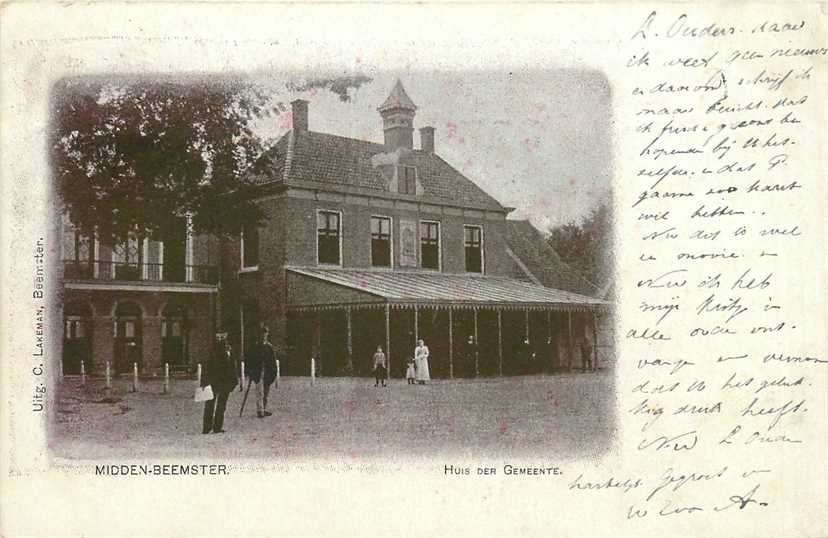 Uitg. C. LAKEMAN, Beemster.
MIDDEN-BEEMSTER.
HUIS DER GEMEENTE.
L. Ouders. daar
ik weet geen nieuws
en daarom schrijf ik
maar
hopende bij U het-
zelfde. en dat P.
gaarne zoo'n kaart
wil hebben..
Nu dit is wel
een mooie. en
Nu ik heb
mijn in
alle orde ont-
vangen en verneem
dat U het geluk-
kig druk heeft.
Nu L. Ouders
hartelijk gegroet van
Uw Zoon A.